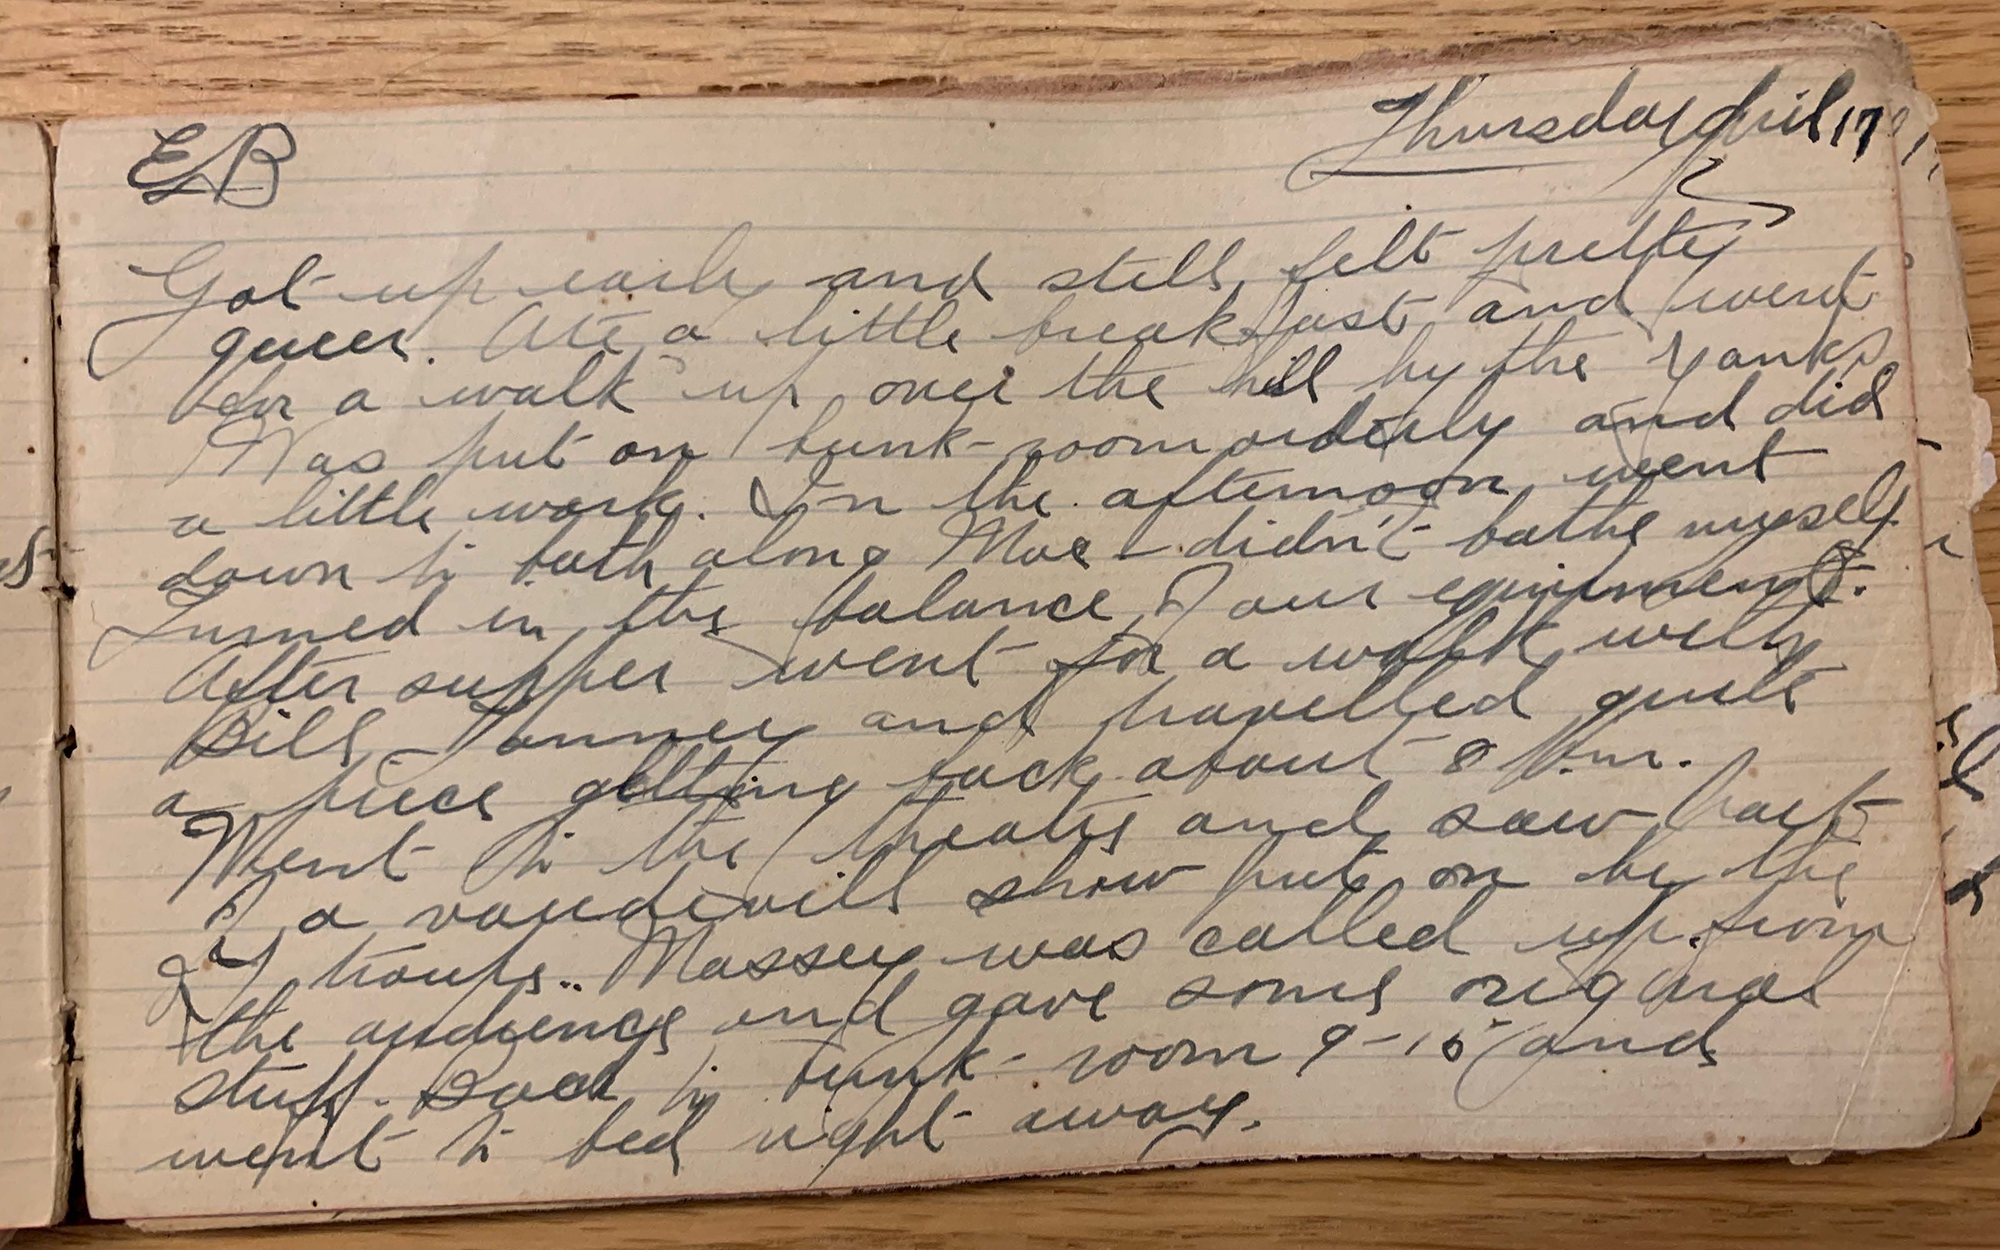 EB
Thursday April 17
Got up early and still felt pretty
queer. Ate a little breakfast and went
for a walk up over the hill by the Yanks
Was put on bunk-room orderly and did
a little work. In the afternoon went
down to bath along Mac - didn't bathe myself
Turned in the balance of our equipment.
After supper went for a walk with
Bill Tanner and travelled quite
a piece getting back about 8 p.m.
Went to the theatre and saw part
of a vaudevill show put on by the
27 troups.. Massey was called up from
the audience and gave some original
stuff. Back to bunk-room 9-15 and
went to bed right away.